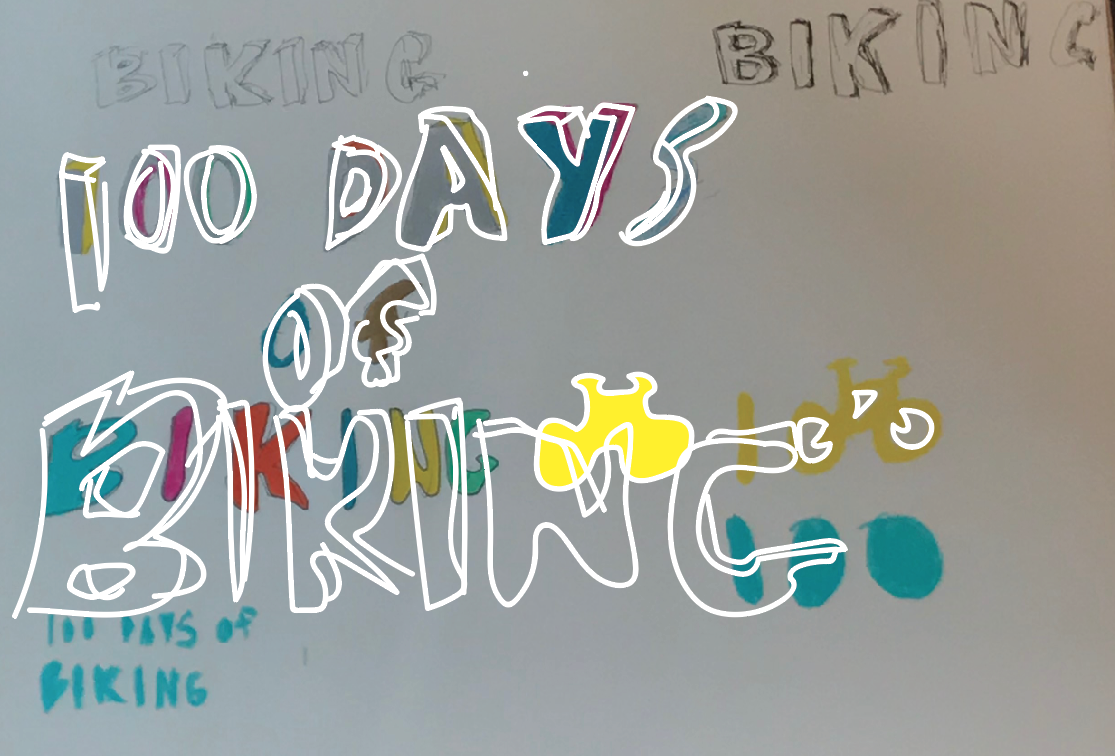 BIKING
BIKING
100 DAYS
OF
BIKING
BIKING
100
100
100 DAYS of
BIKING